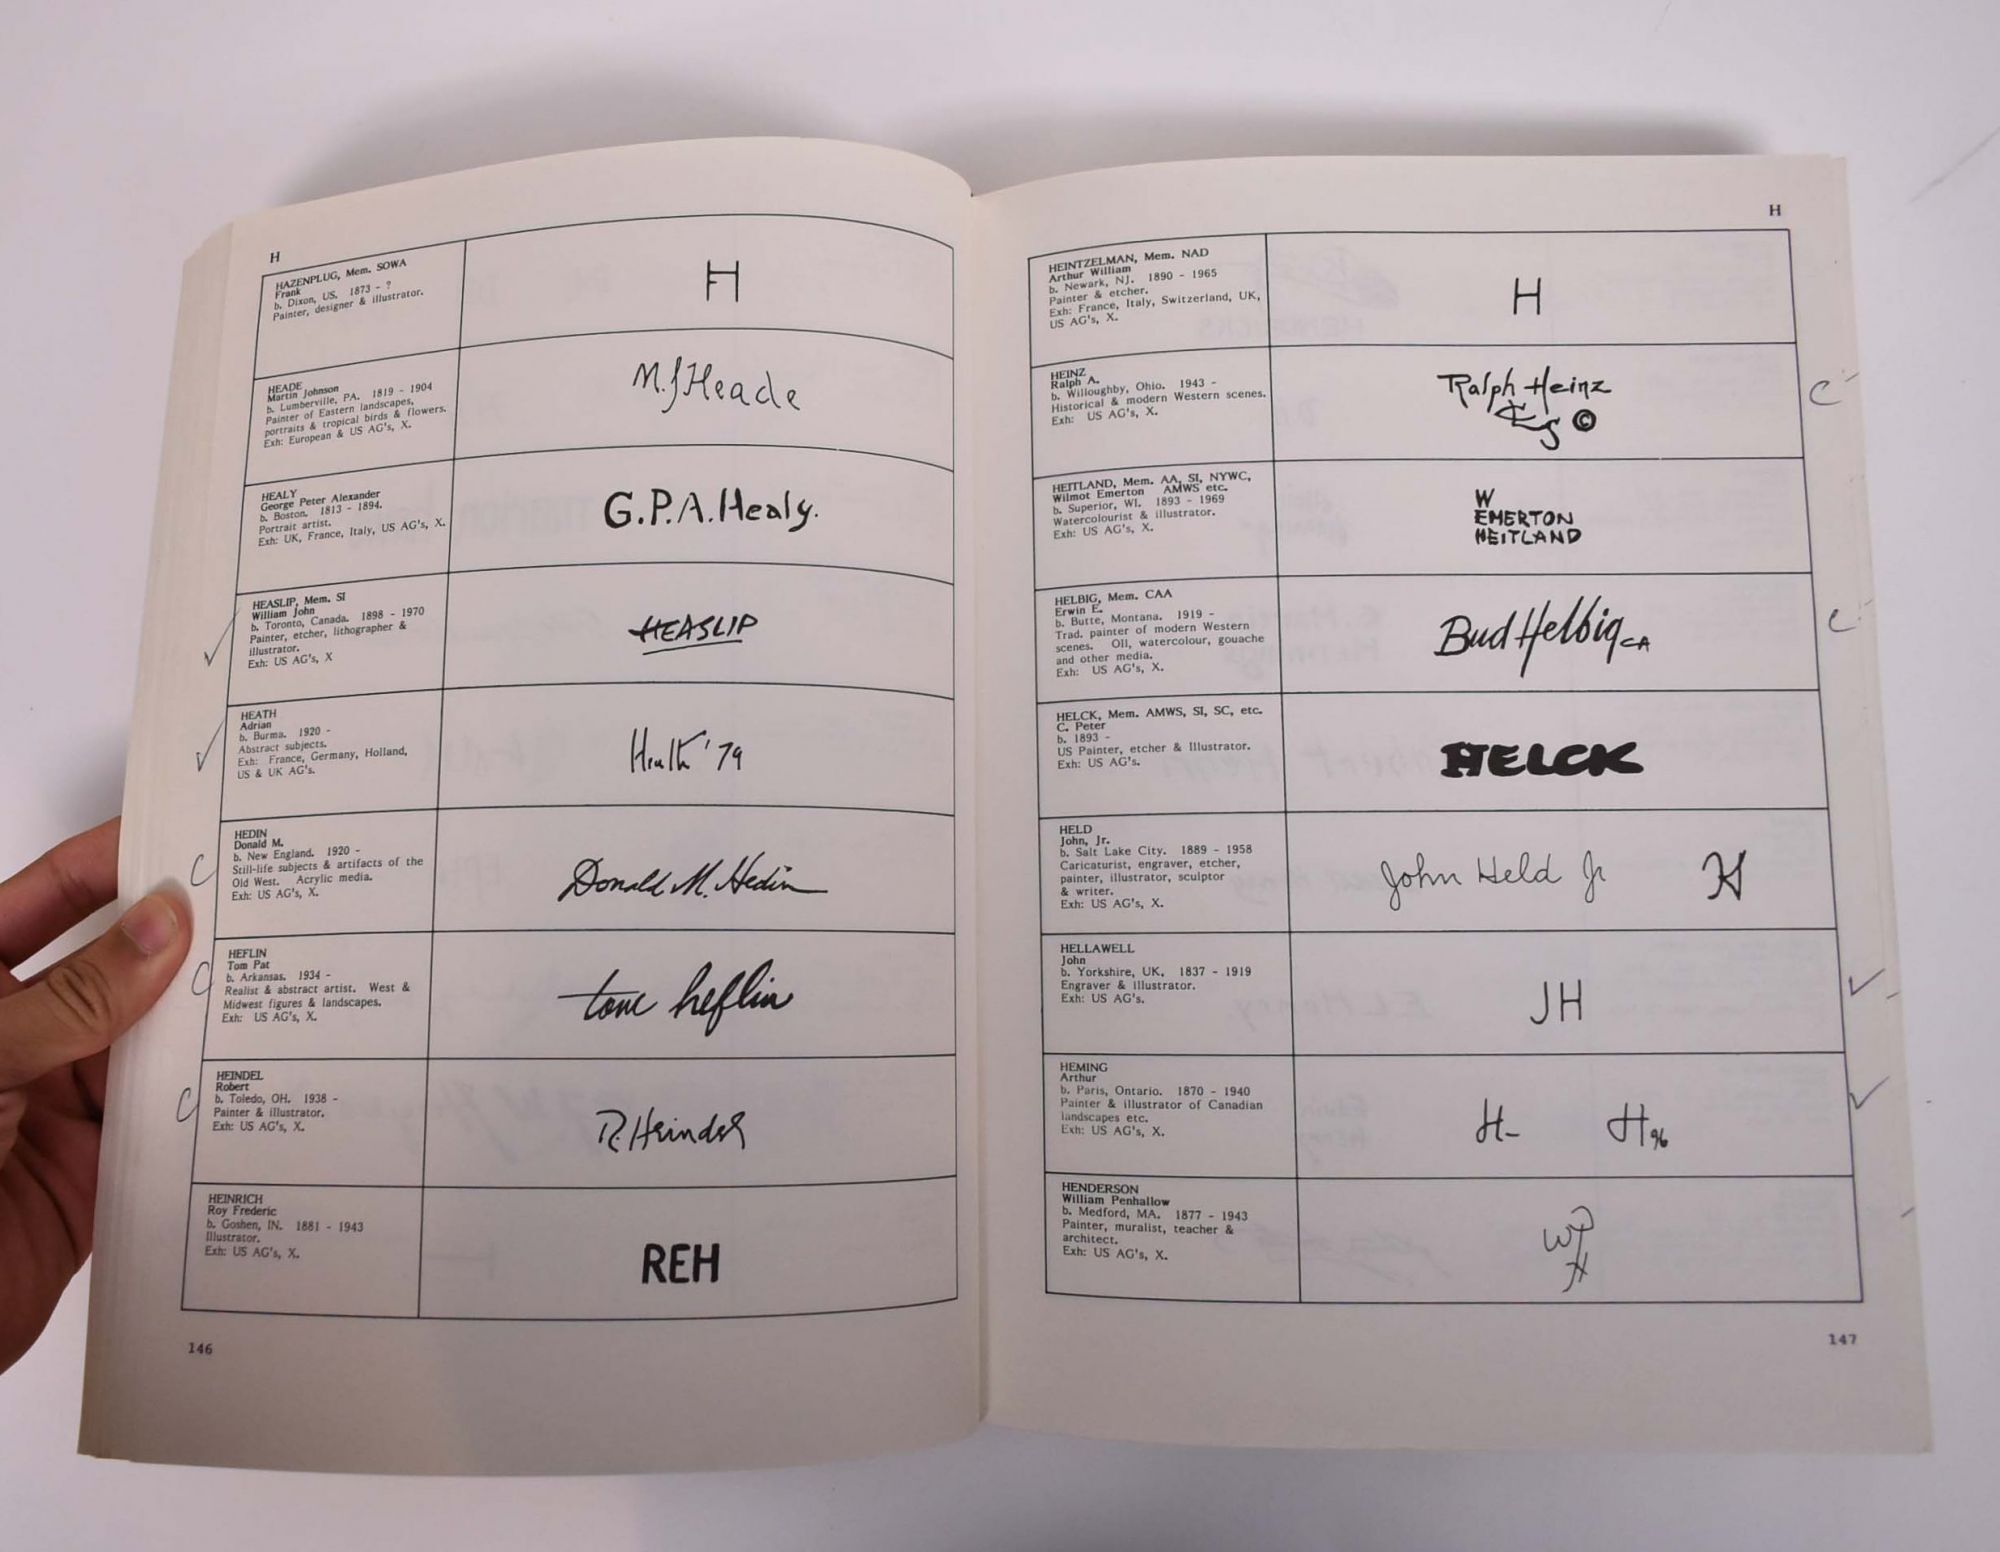 H
HAZENPLUG, Mem. SOWA
Frank
b. Dixon, US. 1873 - ?
Painter, designer & illustrator.
H
HEADE
Martin Johnson
b. Lumberville, PA. 1819 - 1904
Painter of Eastern landscapes,
portraits & tropical birds & flowers.
Exh: European & US AG's, X.
M.J Heade
HEALY
George Peter Alexander
b. Boston. 1813 - 1894.
Portrait artist.
Exh: UK, France, Italy, US AG's, X.
G.P.A. Healy.
HEASLIP, Mem. SI
William John
b. Toronto, Canada. 1898 - 1970
Painter, etcher, lithographer &
illustrator.
Exh: US AG's, X
HEASLIP
HEATH
Adrian
b. Burma. 1920 -
Abstract subjects.
Exh: France, Germany, Holland,
US & UK AG's.
Heath '79
C
HEDIN
Donald M.
b. New England. 1920 -
Still-life subjects & artifacts of the
Old West. Acrylic media.
Exh: US AG's, X.
Donald M. Hedin
C
HEFLIN
Tom Pat
b. Arkansas. 1934 -
Realist & abstract artist. West &
Midwest figures & landscapes.
Exh: US AG's, X.
tom heflin
C
HEINDEL
Robert
b. Toledo, OH. 1938 -
Painter & illustrator.
Exh: US AG's, X.
R. Heindel
HEINRICH
Roy Frederic
b. Goshen, IN. 1881 - 1943
Illustrator.
Exh: US AG's, X.
REH
146
H
HEINTZELMAN, Mem. NAD
Arthur William
b. Newark, NJ. 1890 - 1965
Painter & etcher.
Exh: France, Italy, Switzerland, UK,
US AG's, X.
H
HEINZ
Ralph A.
b. Willoughby, Ohio. 1943 -
Historical & modern Western scenes.
Exh: US AG's, X.
Ralph Heinz
©
C
HEITLAND, Mem. AA, SI, NYWC,
Wilmot Emerton AMWS etc.
b. Superior, WI. 1893 - 1969
Watercolourist & illustrator.
Exh: US AG's, X.
W
EMERTON
HEITLAND
HELBIG, Mem. CAA
Erwin E.
b. Butte, Montana. 1919 -
Trad. painter of modern Western
scenes. Oil, watercolour, gouache
and other media.
Exh: US AG's, X.
Bud Helbig CA
C
HELCK, Mem. AMWS, SI, SC, etc.
C. Peter
b. 1893 -
US Painter, etcher & Illustrator.
Exh: US AG's.
HELCK
HELD
John, Jr.
b. Salt Lake City. 1889 - 1958
Caricaturist, engraver, etcher,
painter, illustrator, sculptor
& writer.
Exh: US AG's, X.
John Held Jr
HELLAWELL
John
b. Yorkshire, UK. 1837 - 1919
Engraver & Illustrator.
Exh: US AG's.
JH
HEMING
Arthur
b. Paris, Ontario. 1870 - 1940
Painter & illustrator of Canadian
landscapes etc.
Exh: US AG's, X.
H- H96
HENDERSON
William Penhallow
b. Medford, MA. 1877 - 1943
Painter, muralist, teacher &
architect.
Exh: US AG's, X.
WPH
147